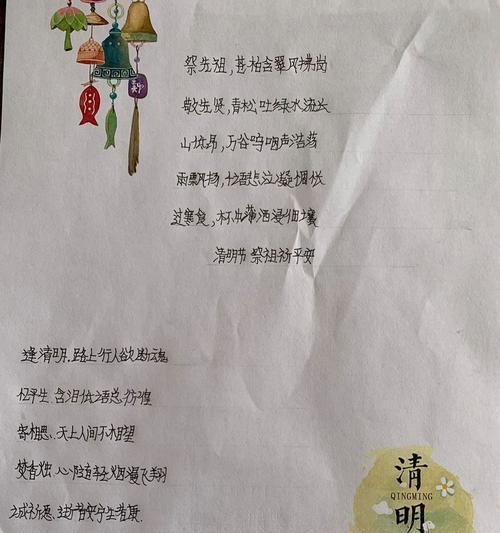 祭先祖,苍柏含翠风拂岗
敬先贤,青松吐绿水流长
山垓昂,万谷呜咽声浩荡
雨飘扬,低语悲泣凝惆怅
过寒食,杯中薄酒浸细壤
清明节 祭祖祈平安
逢清明.路上行人欲断魂
忆平生.含泪低语总彷徨
寄相思.天上人间不相望
焚香烛.心随轻烟漫飞翔
诚祈愿.安宁生者康
清明
QINGMING